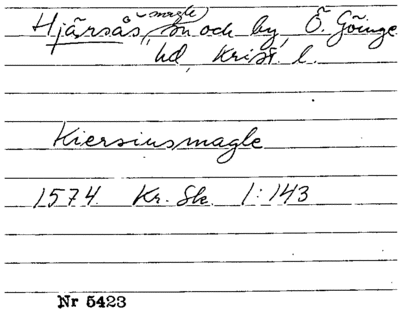 Hjärsås, (magle) sn och by, Ö. Göinge
hd, Krist. l.
Kiersiusmagle
1574 Kr. Sk. 1:143
Nr 5423